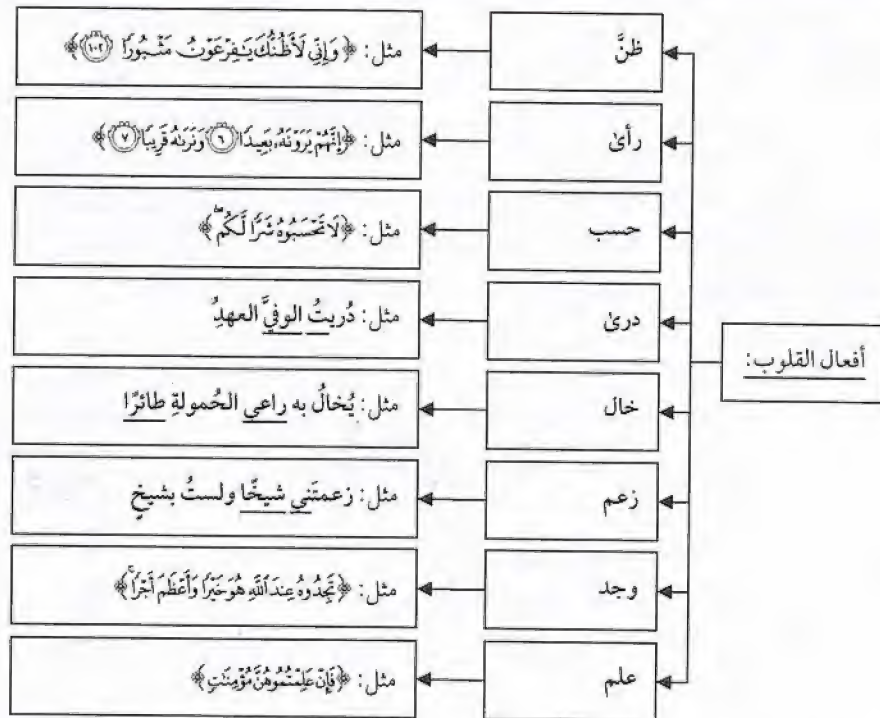 أفعال القلوب:
ظنَّ
مثل: ﴿وَإِنِّي لَأَظُنُّكَ يَٰفِرْعَوْنُ مَثْبُورًا ۝١٠٢﴾
رأىٰ
مثل: ﴿إِنَّهُمْ يَرَوْنَهُۥ بَعِيدًا ۝٦ وَنَرَىٰهُ قَرِيبًا ۝٧﴾
حسب
مثل: ﴿لَا تَحْسَبُوهُ شَرًّا لَّكُم ۖ﴾
درىٰ
مثل: دُريتُ الوفيَّ العهدِ
خال
مثل: يُخالُ به راعي الحُمولةِ طائرًا
زعم
مثل: زعمتَني شيخًا ولستُ بشيخٍ
وجد
مثل: ﴿تَجِدُوهُ عِندَ ٱللَّهِ هُوَ خَيْرًا وَأَعْظَمَ أَجْرًا ۚ﴾
علم
مثل: ﴿فَإِنْ عَلِمْتُمُوهُنَّ مُؤْمِنَٰتٍ﴾